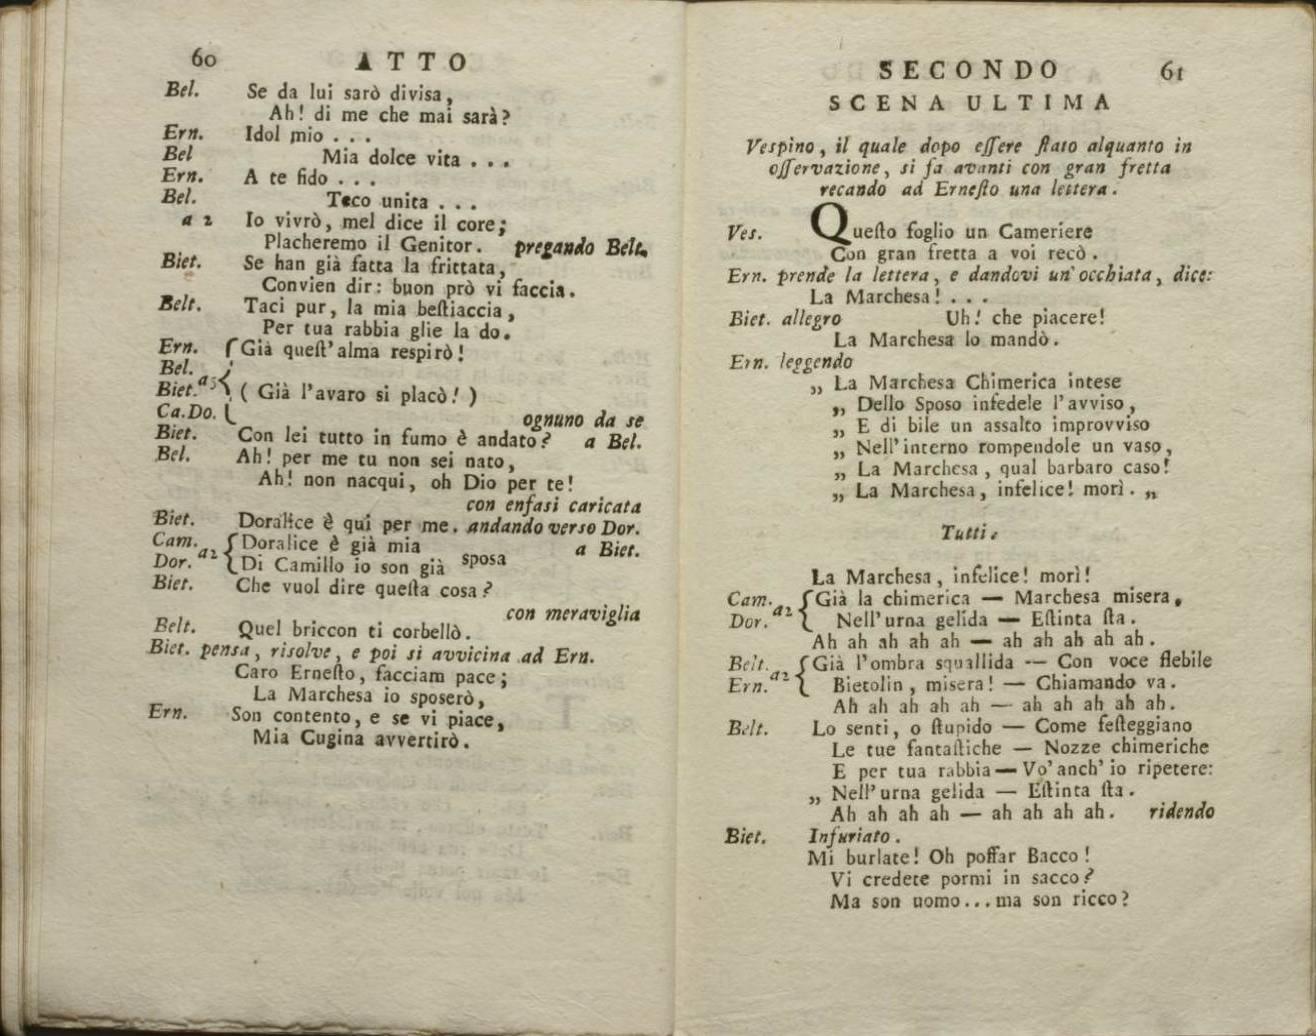 60 ATTO
Bel. Se da lui sarò divisa,
Ah! di me che mai sarà?
Ern. Idol mio . . .
Bel Mia dolce vita . . .
Ern. A te fido . . .
Bel. Teco unita . . .
a 2 Io vivrò, mel dice il core;
Placheremo il Genitor. pregando Belt.
Biet. Se han già fatta la frittata,
Convien dir: buon prò vi faccia.
Belt. Taci pur, la mia beſtiaccia,
Per tua rabbia glie la do.
Ern. { Già queſt'alma respirò!
Bel.
Biet. a5 ( Già l'avaro si placò! )
Ca.Do. ognuno da se
Biet. Con lei tutto in fumo è andato? a Bel.
Bel. Ah! per me tu non sei nato,
Ah! non nacqui, oh Dio per te!
con enfasi caricata
Biet. Doralice è qui per me. andando verso Dor.
Cam. a2 { Doralice è già mia a Biet.
Dor. Di Camillo io son già sposa
Biet. Che vuol dire queſta cosa?
con meraviglia
Belt. Quel briccon ti corbellò.
Biet. pensa, risolve, e poi si avvicina ad Ern.
Caro Erneſto, facciam pace;
La Marchesa io sposerò,
Ern. Son contento, e se vi piace,
Mia Cugina avvertirò.
SECONDO 61
SCENA ULTIMA
Vespino, il quale dopo eſſere ſtato alquanto in
oſſervazione, si fa avanti con gran fretta
recando ad Erneſto una lettera.
Ves. Queſto foglio un Cameriere
Con gran fretta a voi recò.
Ern. prende la lettera, e dandovi un'occhiata, dice:
La Marchesa! . . .
Biet. allegro Uh! che piacere!
La Marchesa lo mandò.
Ern. leggendo
„ La Marchesa Chimerica intese
„ Dello Sposo infedele l'avviso,
„ E di bile un assalto improvviso
„ Nell'interno rompendole un vaso,
„ La Marchesa, qual barbaro caso!
„ La Marchesa, infelice! morì. „
Tutti.
La Marchesa, infelice! morì!
Cam. a2 { Già la chimerica — Marchesa misera,
Dor. Nell'urna gelida — Eſtinta ſta.
Ah ah ah ah ah — ah ah ah ah ah.
Belt. a2 { Già l'ombra squallida — Con voce flebile
Ern. Bietolin, misera! — Chiamando va.
Ah ah ah ah ah — ah ah ah ah ah.
Belt. Lo senti, o ſtupido — Come feſteggiano
Le tue fantaſtiche — Nozze chimeriche
E per tua rabbia — Vo' anch' io ripetere:
„ Nell'urna gelida — Eſtinta ſta.
Ah ah ah ah — ah ah ah ah. ridendo
Biet. Infuriato.
Mi burlate! Oh poffar Bacco!
Vi credete pormi in sacco?
Ma son uomo...ma son ricco?